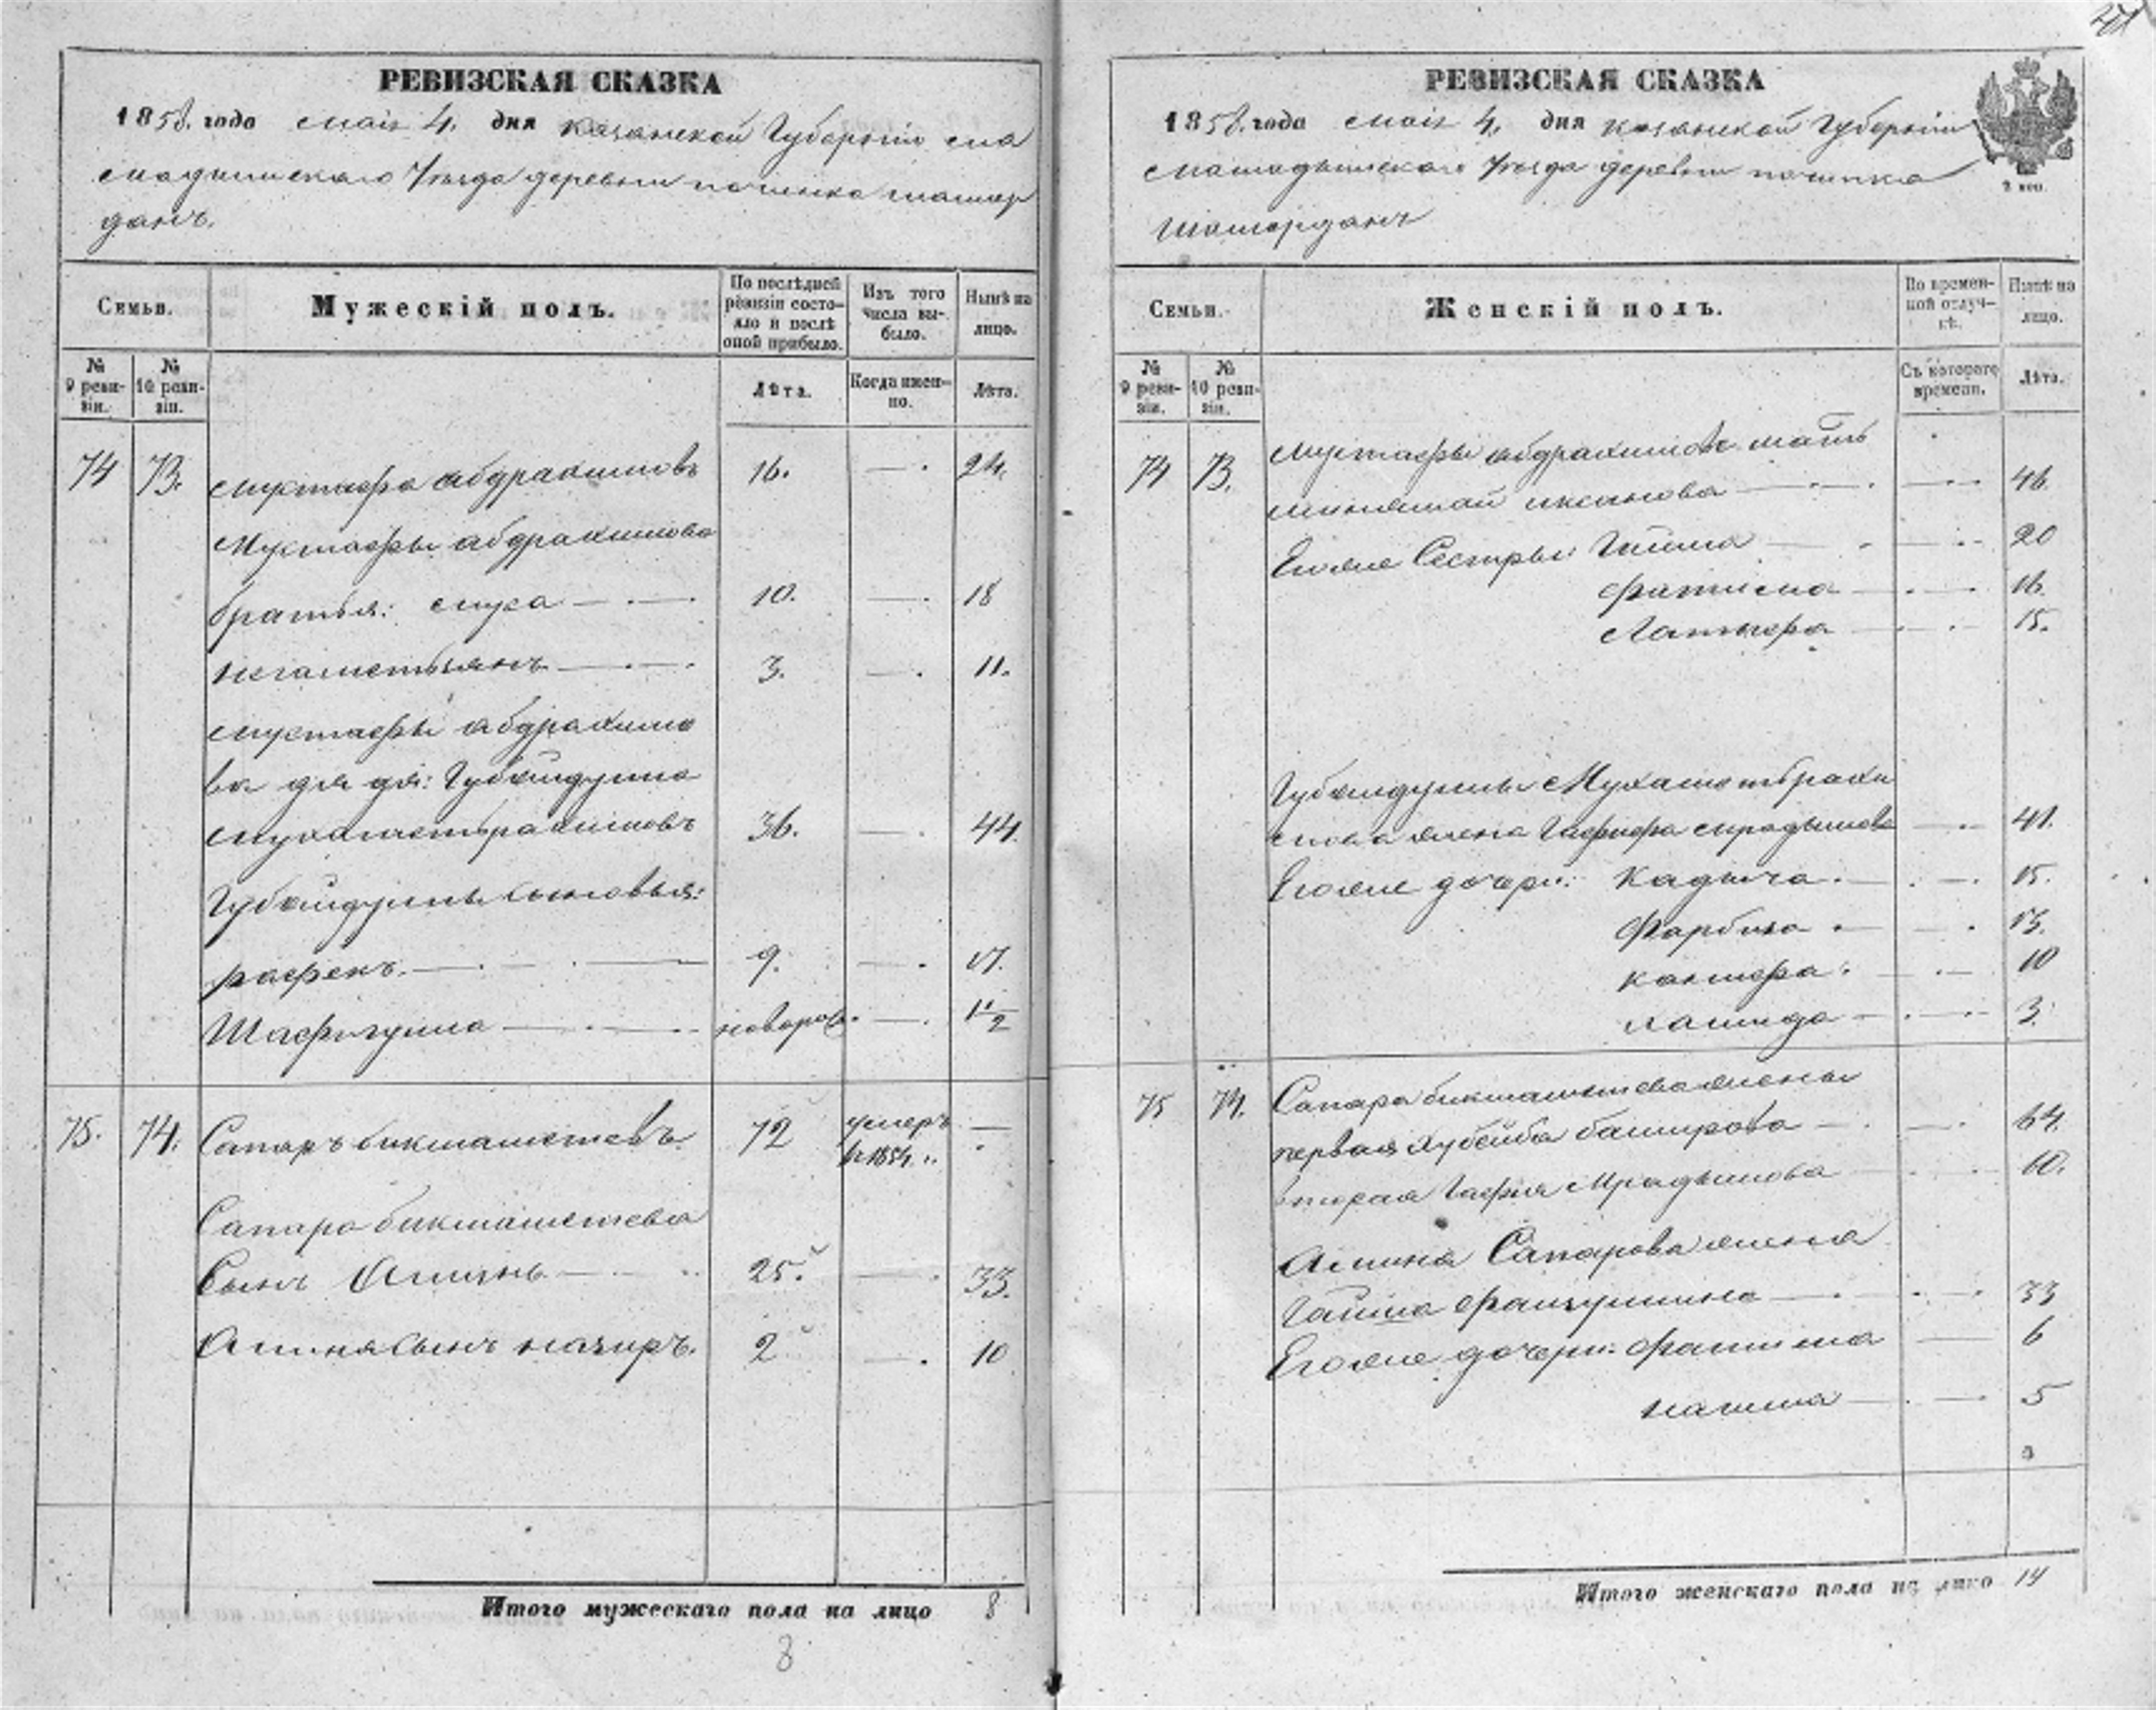 РЕВИЗСКАЯ СКАЗКА
1858. года маія 4. дня казанской Губерніи ма
мадышскаго Уезда деревни починка шашер
данъ.
Семьи.
Мужескій полъ.
По послѣдней ревизіи состояло и послѣ оной прибыло.
Изъ того числа выбыло.
Нынѣ на лицо.
№ 9 ревизіи.
№ 10 ревизіи.
Лѣта.
Когда именно.
Лѣта.
74 73. мустафа абдракимовъ 16. — 24.
Мустафы абдракимова
братья: муса — 10. — 18
негаметьзянъ — 3. — 11.
мустафы абдракимо
ва дядя: Губайдулла
мухаметьракимовъ 36. — 44.
Губайдуллы сыновья:
рафекъ. — 9. — 17.
Шафигулла — новорож. — 1 1/2
75. 74. Сапаръ бикмаметевъ 72 умеръ —
в 1854.
Сапара бикмаметева
Сынъ Аминь — 25. — 33.
Аминя сынъ назиръ. 2 — 10
Итого мужескаго пола на лицо 8
8
РЕВИЗСКАЯ СКАЗКА
1858. года маія 4. дня казанской Губерніи
мамадышскаго Уезда деревни починка
Шашерданъ
2 коп.
Семьи.
Женскій полъ.
Во временной отлучкѣ.
Нынѣ на лицо.
№ 9 ревизіи.
№ 10 ревизіи.
Съ котораго времени.
Лѣта.
74 73. мустафы абдракимова мать
иксанова — 46.
Егоже Сестры: Гайша — 20
фатима — 16.
Латыфа — 15.
Губайдуллы Мухаметьраки
мова жена Гафифа мрадымова — 41.
Егоже дочери: Кадыча. — 15.
Фарбиза — 13.
— 10
рашида — 3.
75 74. Сапара бикмаметева жены
первая Хубейба баширова — 64.
вторая Гафия Мрадымова — 60.
Амина Сапарова жена
Гайша — 33
Егоже дочери: фатима — 6
нагима — 5
Итого женскаго пола на лицо 14